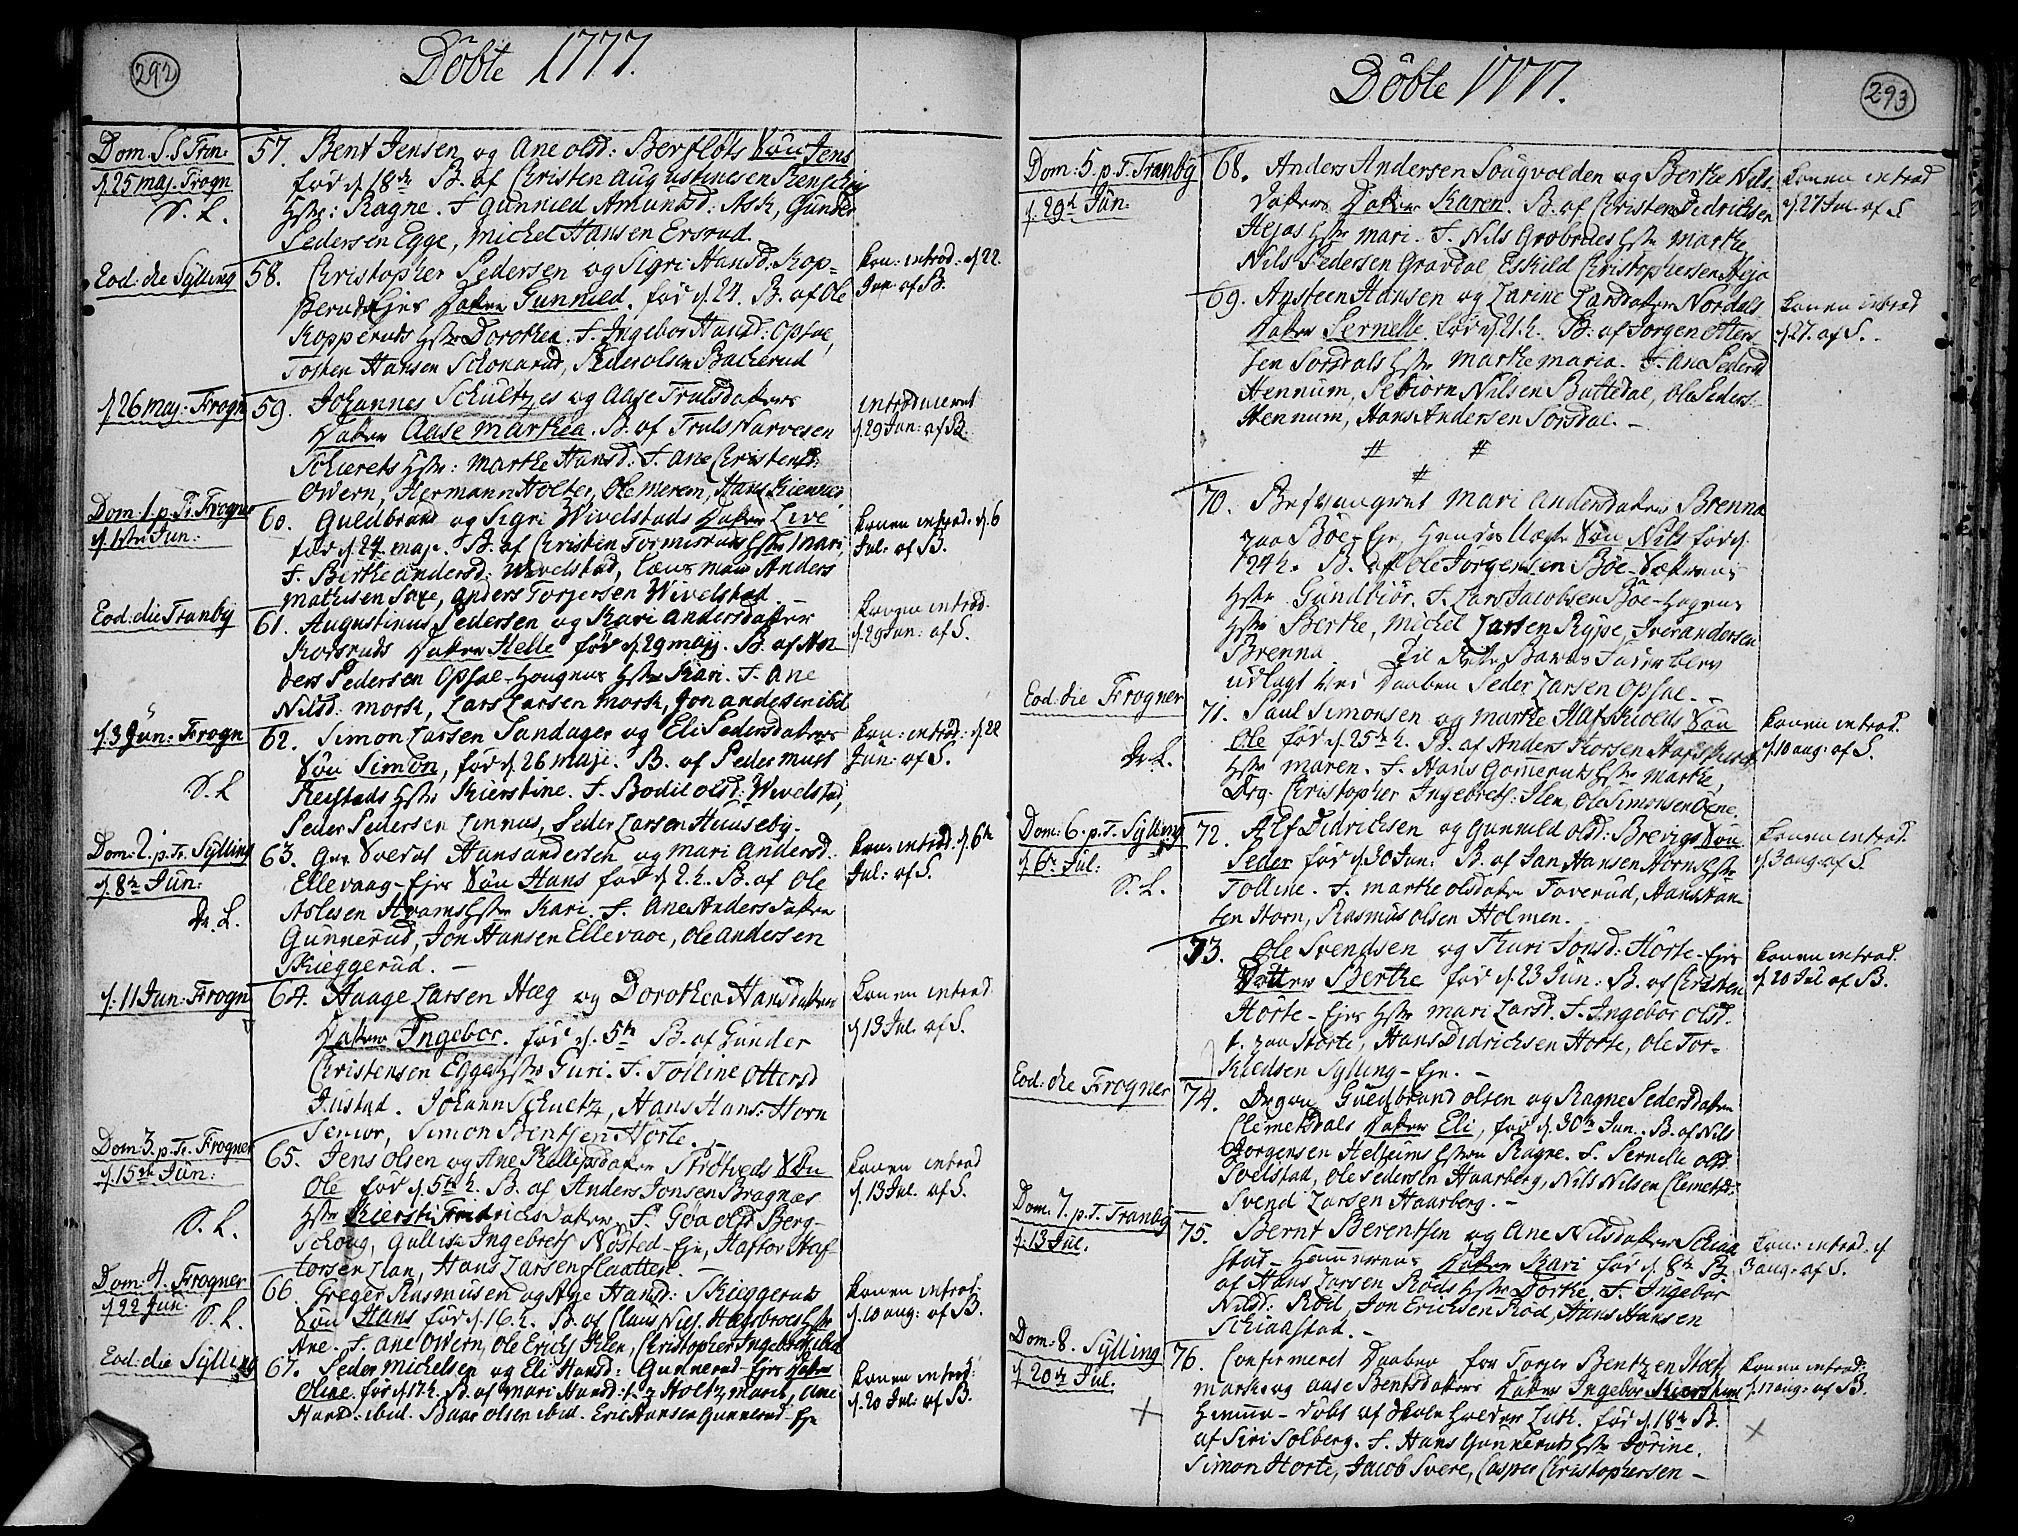 292
Döbte 1777.
Dom. S. S. Trin:
d. 25 maj. Frogn
S. L.
57. Bent Jensen og Ane olsd: Berfløts Søn Jens
før d. 18de B. af Christen Augustinesen
Hstr: Ragne. F. Gunnild Amunsd: Ask, Gunder
Pedersen Egge, Michel Hansen Ersrud.
Eod: die Sylling
58. Christopher Pedersen og Sigri Hansd: Kop-
Eier Datter Gunnild, før d. 24. B. af Ole
Kopperuds Hstr Dorothea. F. Ingebor Hansd: Opsae,
Torsten Hansen Schonerud, Peder olsen Bacherud
Kon: introd: d. 22.
Jun. af B.
d. 26 maj. Frogn
59. Johannes Schultzes og Aase Trulsdatters
Datter Aase Marthea. B. af Truls Narvesen
Schierets Hstr: Marthe Hansd: F. Ane Christensd:
Owern, Hermann Holter, Ole Merem, Hans Kienner
introduceret
d. 29 Jun: af B.
Dom. 1. p. Tr. Frogner
d. 1ste Jun:
60. Guldbrand og Sigri Wivelstads Datter Live
før d. 24 maji. B. af Christen Tormisruds Hstr Mari,
F. Birthe Andersd: Wivelstad, Lensmand Anders
Mathisen Saxe, Anders Torjersen Wivelstad.
Konen introd. d. 6
Jul: af B.
Eod: die Tranby
61. Augustinus Pedersen og Kari Andersdatter
Rødsruds Datter Helle før d. 29 maji. B. af An
ders Pedersen Opsae-Hougens Hstr Kari. F. Ane
Nilsd: Morsk, Lars Larsen Morsk, Jon Andersen ibid
Konen introd.
d. 29 Jun: af S.
d. 3 Jun: Frogn
S. L
62. Simon Larsen Sandager og Eli Pedersdatters
Søn Simon, før d. 26 maji. B. af Peder Muss
Reistads Hstr Kierstine. F. Bodil olsd: Wivelstad,
Peder Pedersen Linnus, Peder Larsen Huuseby.
Kon: introd: d. 22
Jun: af S.
Dom: 2. p. Tr. Sylling
d. 8de Jun:
Dr. L.
63. Hans Andersen og Mari Andersd.
Ellevaag-Ejes Søn Hans før d. 2. h. B. af Ole
Aslesen Hvams Hstr Kari. F. Ane Andersdatter
Gunnerud, Jon Hansen Ellevaae, Ole Andersen
Skieggerud. —
Kon: introd. d. 6te
Jul: af S.
d. 11 Jun: Frogn
64. Haage Larsen Hæg og Dorothea Hansdatters
Datter Ingebor. før d. 5te B. af Gunder
Christensen Egges Hstr Guri. F. Tolline Ottersd
Justad. Johann Schultz, Hans Hans: Horn
Senior, Simon Bentsen Horte.
Konen introd.
d. 13 Jul. af S.
Dom. 3. p. Tr. Frogner
d. 15de Jun:
S. L.
65. Jens Olsen og Ane Kellersdatter Strøtveds Søn
Ole før d. 5te h. B. af Anders Jonsen Bragnæs
Hstr Kiersti Fridrichsdatter. F. Goa olsd Berg-
Schoug, Gullich Ingebrets Nøsted-Eje, Haftor Haf
torsen Lian, Hans Larsen Flaatten.
Konen introd
d. 13 Jul. af S.
Dom: 4. Frogner
d. 22 Jun:
S. L.
66. Greger Rasmusen og Aase Hansd: Skieggeruds
Søn Hans før d. 16. h. B. af Claus Niels. Hagbroes Hstr
Ane. F. Ane Owern, Ole Erichs Ihlen, Christopher Ingebrets ibid
Konen introd:
d. 10 aug: af B.
Eod: die Sylling
67. Peder Michelsen og Eli Hansd: Gunnerud-Ejes Datter
Oline. før d. 17 h. B. af Mari Hansd: Holtzmarch, Ane
Hansd: ibid. Baar Olsen ibid. Eric Hansen Gunnerud-Eje
Konen introd:
d. 20 Jul: af B.
293
Döbte 1777.
Dom: 5. p. T. Tranby
d. 29de Jun:
68. Anders Andersen Sougvolden og Berthe Nils
Datters Datter Karen. B. af Christen Didrichsen
Hejas Hstr Mari. F. Nils Grøbredes Hstr Marthe,
Nils Pedersen Gravdal, Eskild Christophersen Heja
Konen introd
d. 27 Jul. af S
69. Ansteen Hansen og Larine Larsdatter Nordals
Datter Pernelle. før d. 21. h. B. af Jørgen Otter-
sen Sorsdals Hstr Marthe Maria. F. Ane Pedersd
Hennum, Sebiorn Nilsen Buttedal, Ole Peders-
Hennum, Hans Andersen Sorsdal. —
Konen introd
d. 27. af S.
# # #
70. Besvangret Mari Andersdatter Brenna
paa Böe-Eje, hendes Uægte Søn Nils før d.
24 h. B. af Ole Jørgensen Böe-Sætrens
Hstr Gundbiör. F. Lars Jacobsen Böe-Hagens
Hstr Berthe, Michel Larsen Rype, Iver Andersen
Brenna. Til Barne Fader blev
udlagt ved Daaben Peder Larsen Opsae. —
Eod: die Frogner
Dr. L.
71. Paul Simonsen og Marthe Hafskiolds Søn
Ole før d. 25de h. B. af Anders Thorsen Hafskiold
Hstr Maren. F. Hans Gomeruds Hstr Marthe,
Drg. Christopher Ingebrets: Ilen, Ole Simonsen Oxne.
Konen introd.
d. 10 aug: af S.
Dom: 6. p. T. Sylling
d. 6te Jul:
S. L.
72. Alf Didrichsen og Gunnild olsd: Brevigs Søn
Peder før d. 30 Jun: B. af Jan Hansen Horns Hstr
Tolline. F. Marthe olsdatter Toverud, Hans Han-
sen Horn, Rasmus Olsen Holmen.
Konen introd.
d. 3 aug. af S
73. Ole Svendsen og Kari Jonsd: Hörte-Ejes
Datter Berthe før d. 23 Jun: B. af Christen
Hörte-Ejes Hstr Mari Larsd. F. Ingebor olsd.
t. paa Horte, Hans Didrichsen Horte, Ole Tor-
kildsen Sylling-Eje. —
Konen introd.
d. 20 Jul af B.
Eod: die Frogner
74. Guldbrand Olsen og Ragne Pedersdatter
Clemetsdals Datter Eli, før d. 30te Jun. B. af Nils
Jørgensen Helsums Hstr Ragne. F. Pernille olsd
Svelstad, Ole Pedersen Haarberg, Nils Nilsen Clemetsd:
Svend Larsen Haarberg. —
Dom. 7. p. T. Tranby
d. 13 Jul.
75. Bernt Berentsen og Ane Nilsdatter Schiaa
stad-Hammerens Datter Kari før d. 8de B.
af Hans Larsen Røds Hstr Dorthe. F. Ingebor
Nilsd: Röd, Jon Erichsen Röd, Hans Hansen
Schiaastad. —
Kon: introd. d
3 aug: af S.
Dom: 8. Sylling
d. 20de Jul:
76. Confirmeret Daaben for Torger Bentzen Holtz
march og Aase Bentsdatters Datter Ingebor Kierstine
hiemme-döbt af Skoleholder Luth. før d. 18de B.
af Siri Solberg. F. Hans Gunneruds Hstr Jörine.
Simon Horte, Jacob Svere, Casper Christophersen —
Konen introd:
d. 17 aug: af B.